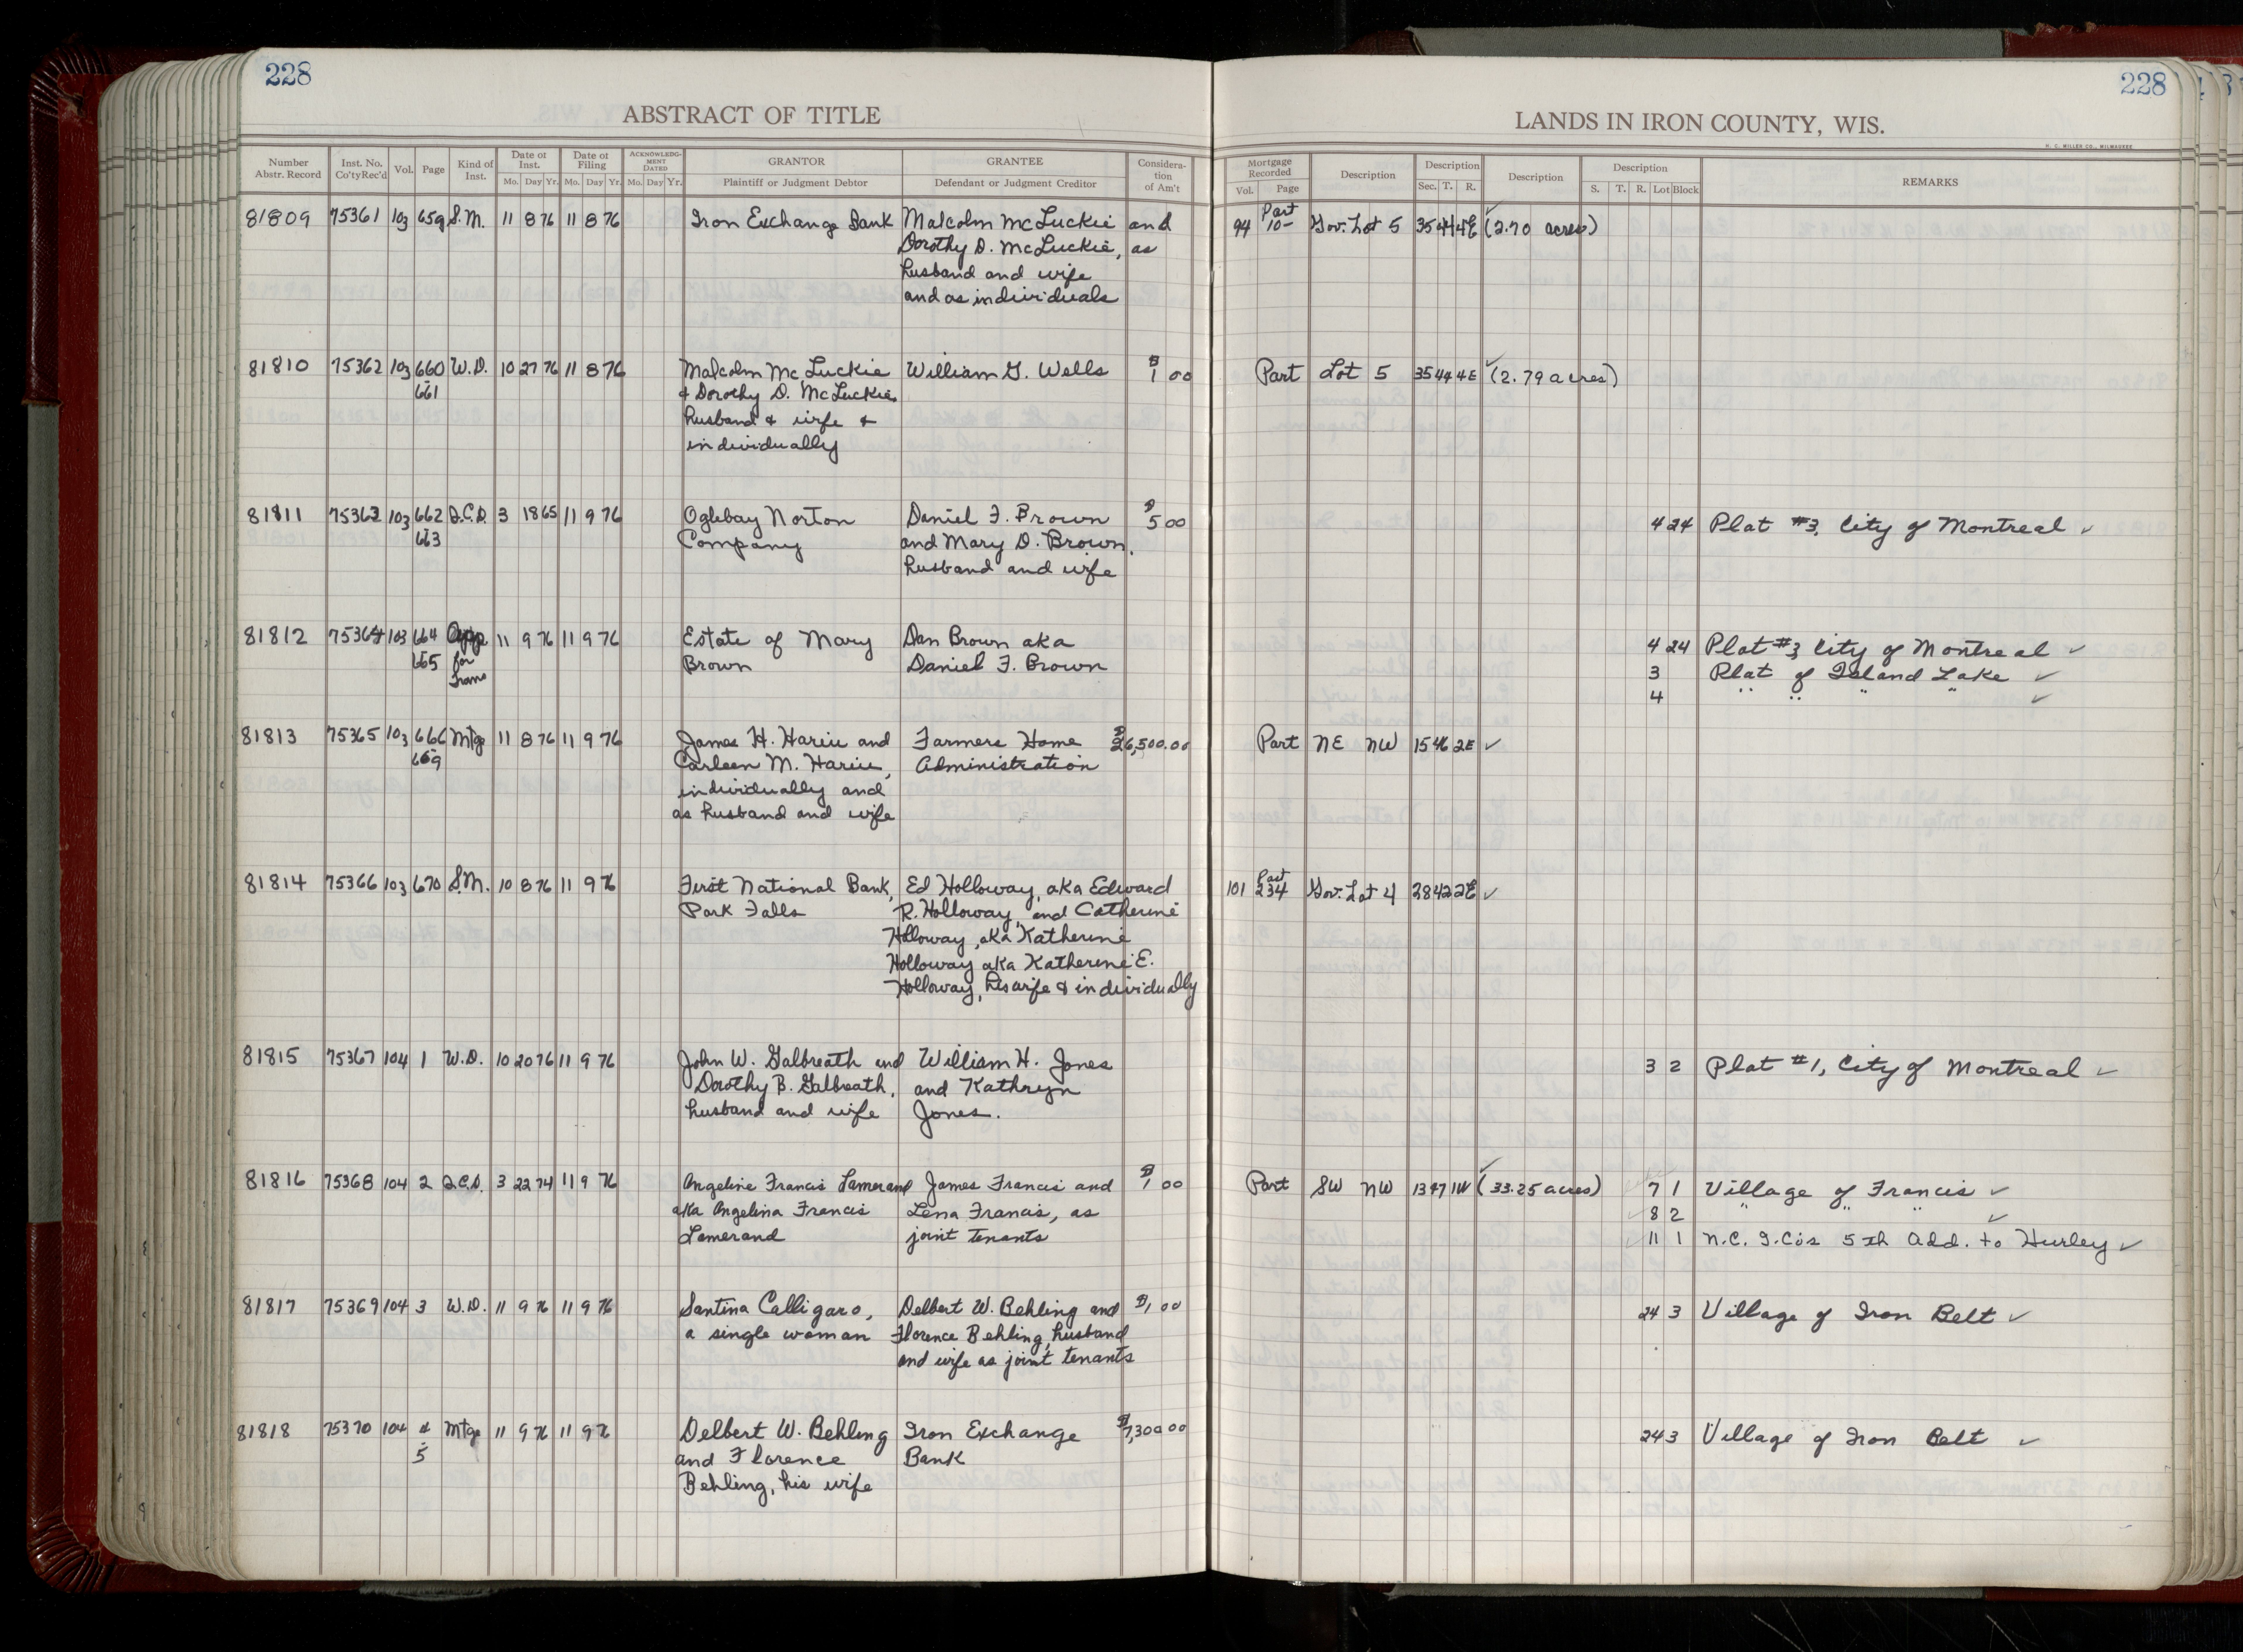 228
228
ABSTRACT OF TITLE
LANDS IN IRON COUNTY, WIS.
H. C. MILLER CO., MILWAUKEE
Number Abstr. Record Inst. No. Co'ty Rec'd Vol. Page Kind of Inst. Date of Inst. Mo. Day Yr. Date of Filing Mo. Day Yr. ACKNOWLEDGMENT DATED Mo. Day Yr. GRANTOR Plaintiff or Judgment Debtor GRANTEE Defendant or Judgment Creditor Consideration of Am't Mortgage Recorded Vol. Page Description Description Sec. T. R. Description Description S. T. R. Lot Block REMARKS
81809 75361 103 659 S.M. 11 8 76 11 8 76 Iron Exchange Bank Malcolm McLuckie and 94 Part 10- Gov. Lot 5 35 44 4E (2.70 acres)
Dorothy D. McLuckie, as
husband and wife
and as individuals
81810 75362 103 660 W.D. 10 27 76 11 8 76 Malcolm McLuckie William G. Wells $1 00 Part Lot 5 35 44 4E ✓ (2.79 acres)
- 661 & Dorothy D. McLuckie
husband & wife &
individually
81811 75363 103 662 Q.C.D. 3 18 65 11 9 76 Oglebay Norton Daniel F. Brown $5 00 4 24 Plat #3, City of Montreal ✓
- 663 Company and Mary D. Brown,
husband and wife
81812 75364 103 664 App 11 9 76 11 9 76 Estate of Mary Dan Brown aka 4 24 Plat #3 City of Montreal ✓
- 665 for Brown Daniel F. Brown 3 Plat of Island Lake ✓
Trans 4 " " " " ✓
81813 75365 103 666 Mtg 11 8 76 11 9 76 James H. Hariu and Farmers Home $26,500.00 Part NE NW 15 46 2E ✓
- 669 Carleen M. Hariu, Administration
individually and
as husband and wife
81814 75366 103 670 S.M. 10 8 76 11 9 76 First National Bank, Ed Holloway, aka Edward 101 Part 234 Gov. Lot 4 28 42 2E ✓
Park Falls R. Holloway, and Catherine
Holloway, aka Katherine
Holloway aka Katherine E.
Holloway, his wife & individually
81815 75367 104 1 W.D. 10 20 76 11 9 76 John W. Galbreath and William H. Jones 3 2 Plat #1, City of Montreal ✓
Dorothy B. Galbreath, and Kathryn
husband and wife Jones.
81816 75368 104 2 Q.C.D. 3 22 74 11 9 76 Angeline Francis Lamerand James Francis and $1 00 Part SW NW 13 47 1W ✓ (33.25 acres) 7 1 Village of Francis ✓
aka Angelina Francis Lena Francis, as 8 2 " " " ✓
Lamerand joint tenants 11 1 N.C. I. Co's 5th Add. to Hurley ✓
81817 75369 104 3 W.D. 11 9 76 11 9 76 Santina Calligaro, Delbert W. Behling and $1 00 24 3 Village of Iron Belt ✓
a single woman Florence Behling, husband
and wife as joint tenants
81818 75370 104 4 Mtg 11 9 76 11 9 76 Delbert W. Behling Iron Exchange $7,300 00 24 3 Village of Iron Belt ✓
- 5 and Florence Bank
Behling, his wife